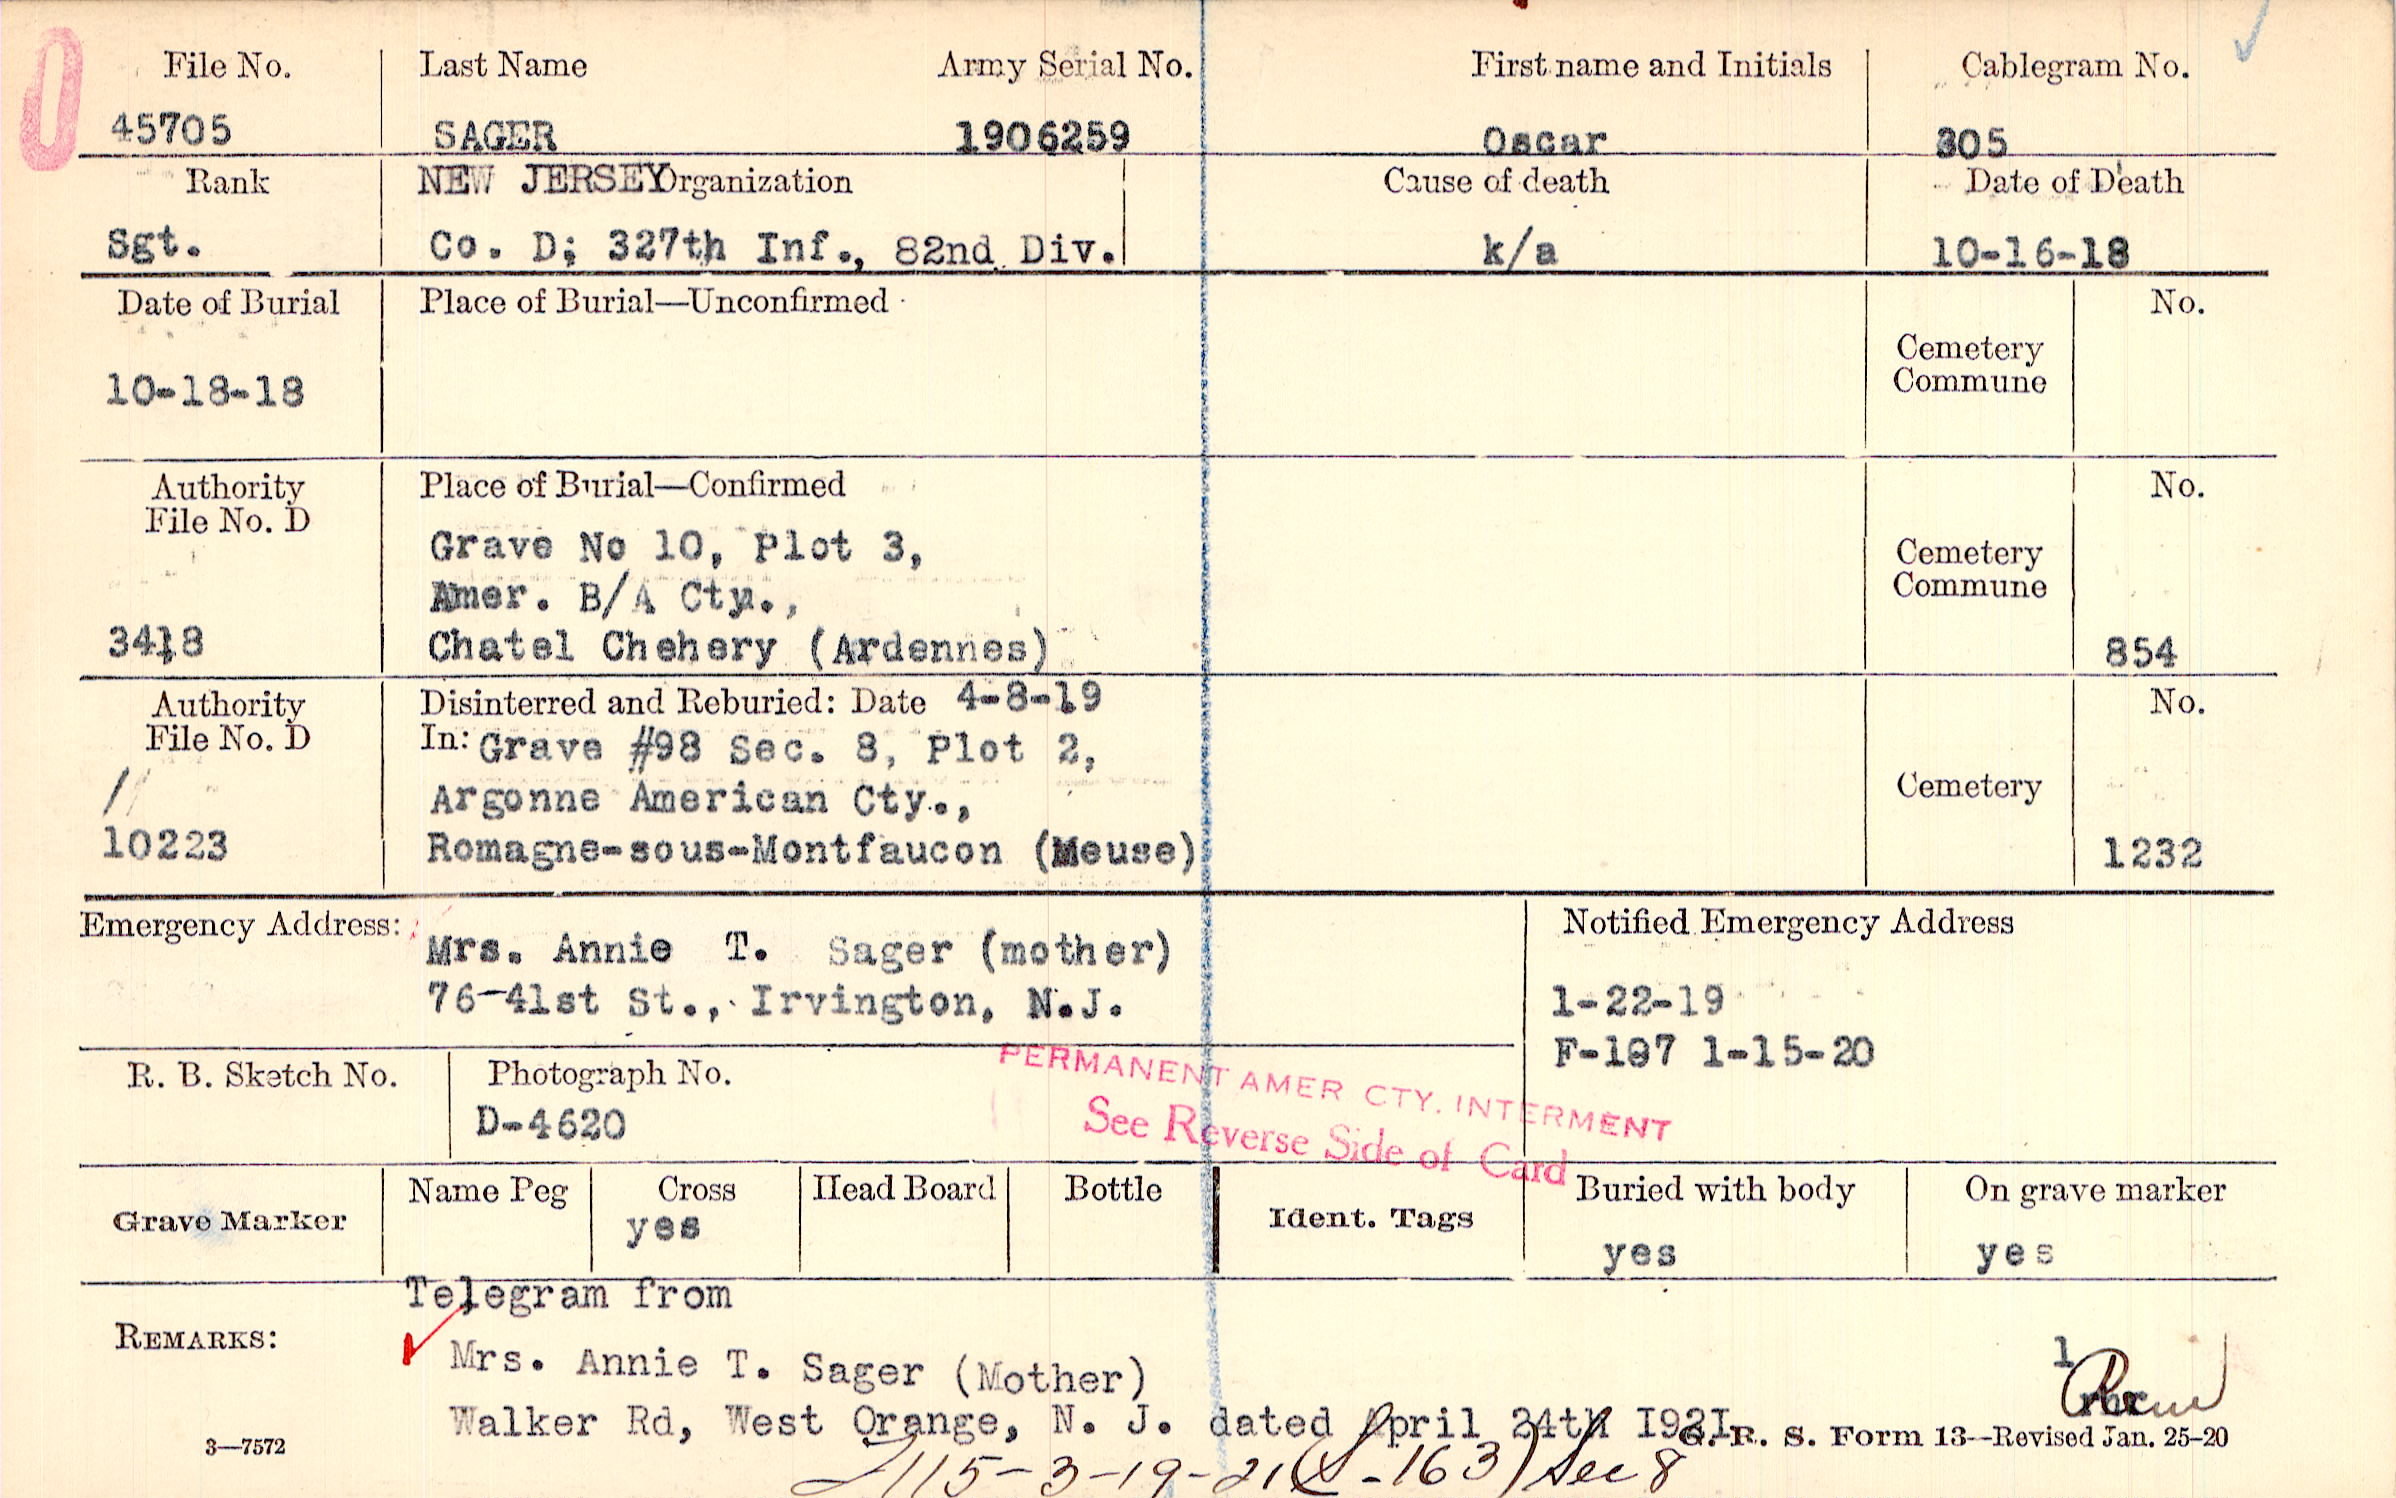 File No. Last Name Army Serial No. First name and Initials Cablegram No.
45705 SAGER 1906259 Oscar 305
Rank NEW JERSEY Organization Cause of death Date of Death
Sgt. Co. D; 327th Inf., 82nd Div. k/a 10-16-18
Date of Burial Place of Burial—Unconfirmed No.
Cemetery
Commune
10-18-18
Authority Place of Burial—Confirmed No.
File No. D
Grave No 10, Plot 3,
Cemetery
Commune
Amer. B/A Cty.,
3418 Chatel Chehery (Ardennes) 854
Authority Disinterred and Reburied: Date 4-8-19 No.
File No. D In: Grave #98 Sec. 8, Plot 2,
Argonne American Cty., Cemetery
10223 Romagne-sous-Montfaucon (Meuse) 1232
Emergency Address: Notified Emergency Address
Mrs. Annie T. Sager (mother)
76-41st St., Irvington, N.J. 1-22-19
F-197 1-15-20
R. B. Sketch No. Photograph No.
D-4620
PERMANENT AMER CTY. INTERMENT
See Reverse Side of Card
Grave Marker Name Peg Cross Head Board Bottle Ident. Tags Buried with body On grave marker
yes yes yes
Telegram from
REMARKS:
Mrs. Annie T. Sager (Mother) 1
Walker Rd, West Orange, N. J. dated April 24th 1921
3—7572 G. R. S. Form 13—Revised Jan. 25-20
3-19-21 -163) Sec 8